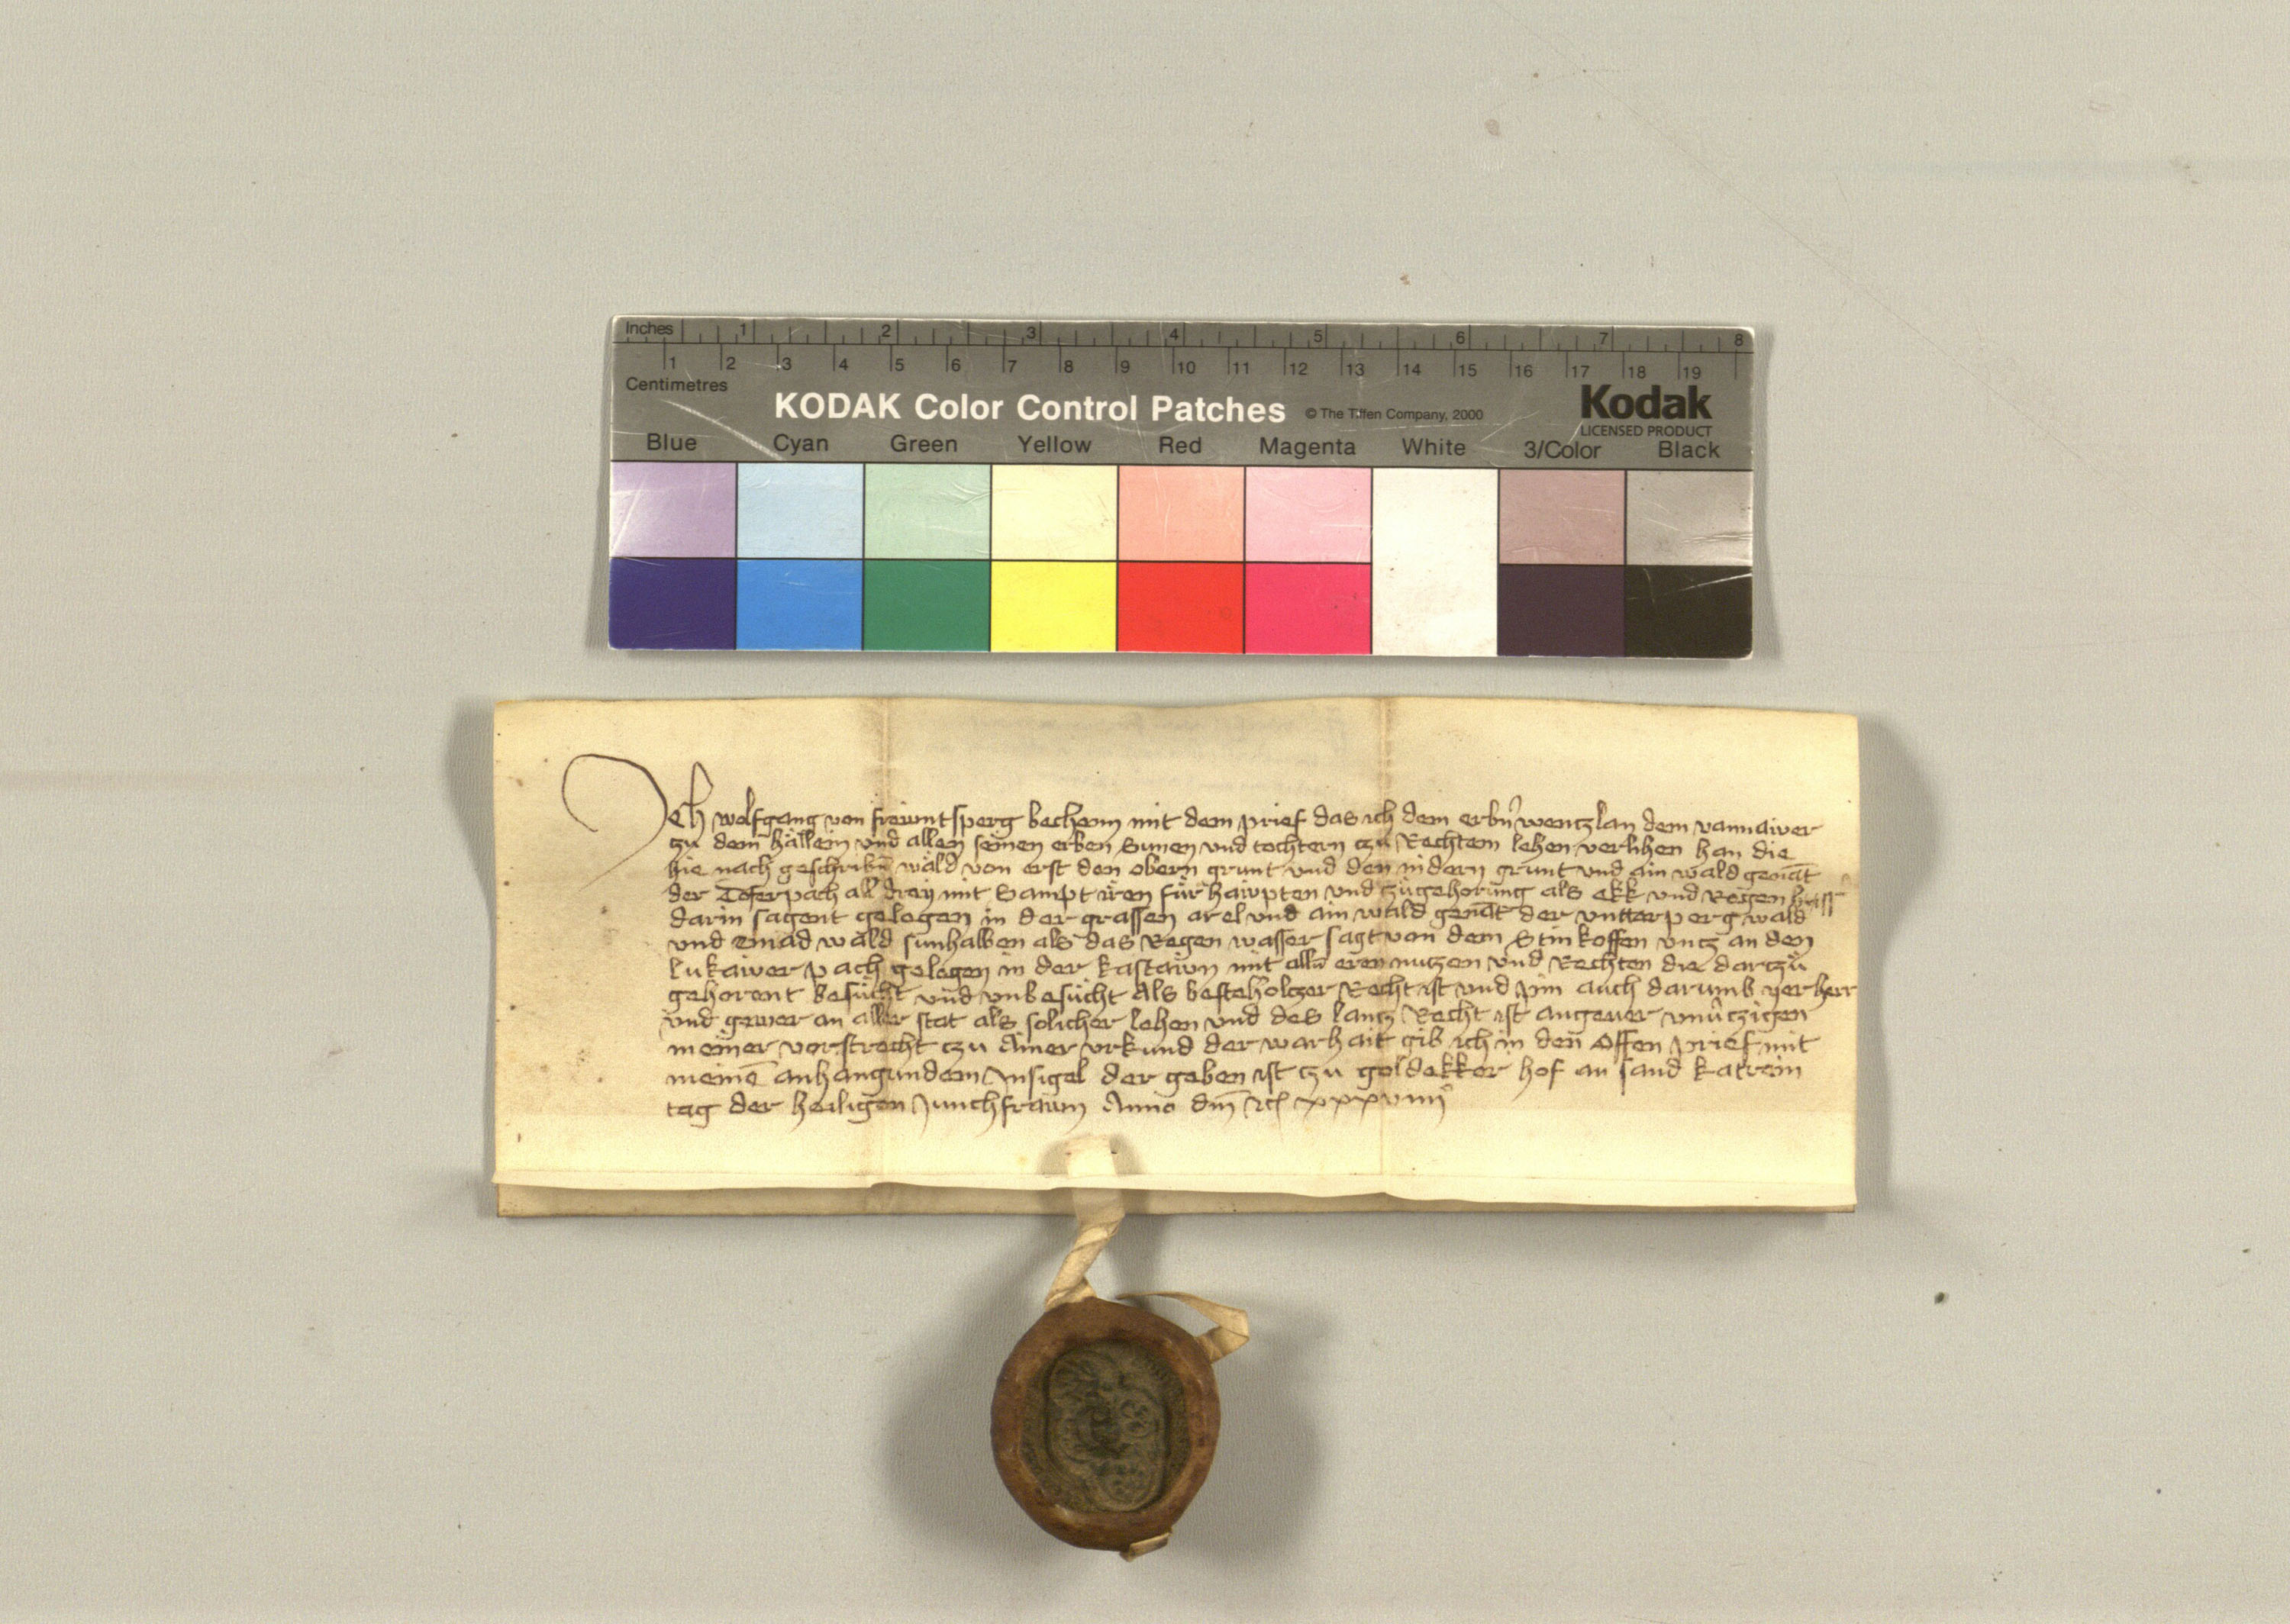 Inches 1 2 3 4 5 6 7 8
1 2 3 4 5 6 7 8 9 10 11 12 13 14 15 16 17 18 19
Centimetres
KODAK Color Control Patches © The Tiffen Company, 2000 Kodak
LICENSED PRODUCT
Blue Cyan Green Yellow Red Magenta White 3/Color Black
Ich wolfgang von freẅntsperg bechenn mit dem prief das ich dem erbn̄ wentzlan dem vannawer
tzu dem hällein vnd allen seinen erben Sunen vnd tochtern tzu Rechtem lehen verlihen han die
hie nach geschribn̄ wäld von erst den obern grunt vnd den nidern grunt vnd ain wald genāt
der Toferpach all dreÿ mit Sampt iren fürhawpten vnd zugehorung als ekk vnd Regen wass
darin sagent gelegen in der grassen arel vnd ain wald genāt der vntterperg wald
vnd wald sunhalben als das Regen wasser sagt von dem Stinkoffen vntz an den
lukawer pach gelegen in der kastawn mit alln̄ eren nutzen vnd Rechten die dartzü
gehorent besücht vnd vnbesücht Als bestehöltzer Recht ist vnd pin auch darumb yer herr
vnd gewer an aller stat als solicher lehen vnd des lantz Recht ist angeuer
meiner vorstrecht tzu Ainer vrkund der warhait gib ich in den Offen prief mit
meinē anhangundem Insigel der geben ist tzu goldekker hof an sand katrein
tag der heiligen Junchfrawn Anno dm̄ xxxviiii